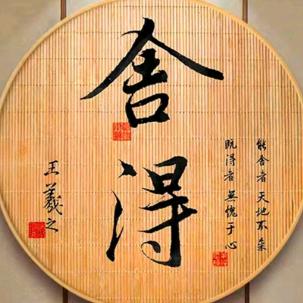 舍得
能舍者天地不灸
既得者無愧于心
王羲之